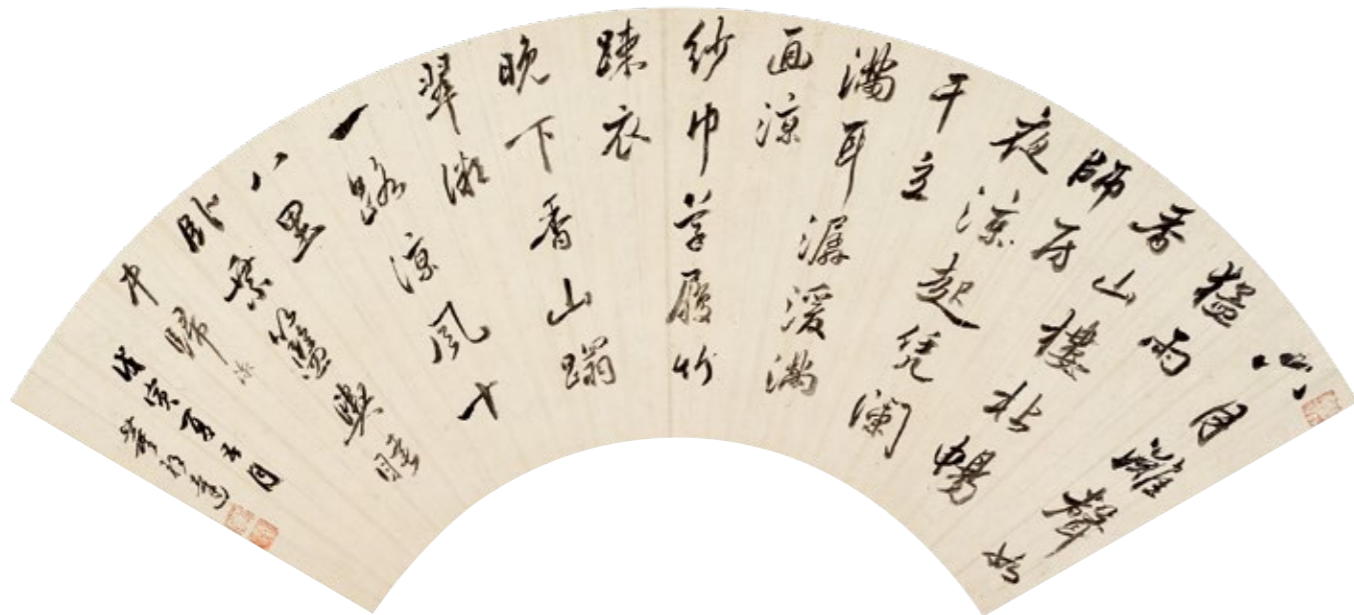 六月灘聲如
猛雨
香山樓北暢
師房
夜凉起凭瀾
干立
滿耳潺湲滿
面凉
紗巾草履竹
疎衣
晚下香山蹋
翠微
一路凉風十
八里
卧乘籃輿睡
中歸
戊寅夏五月